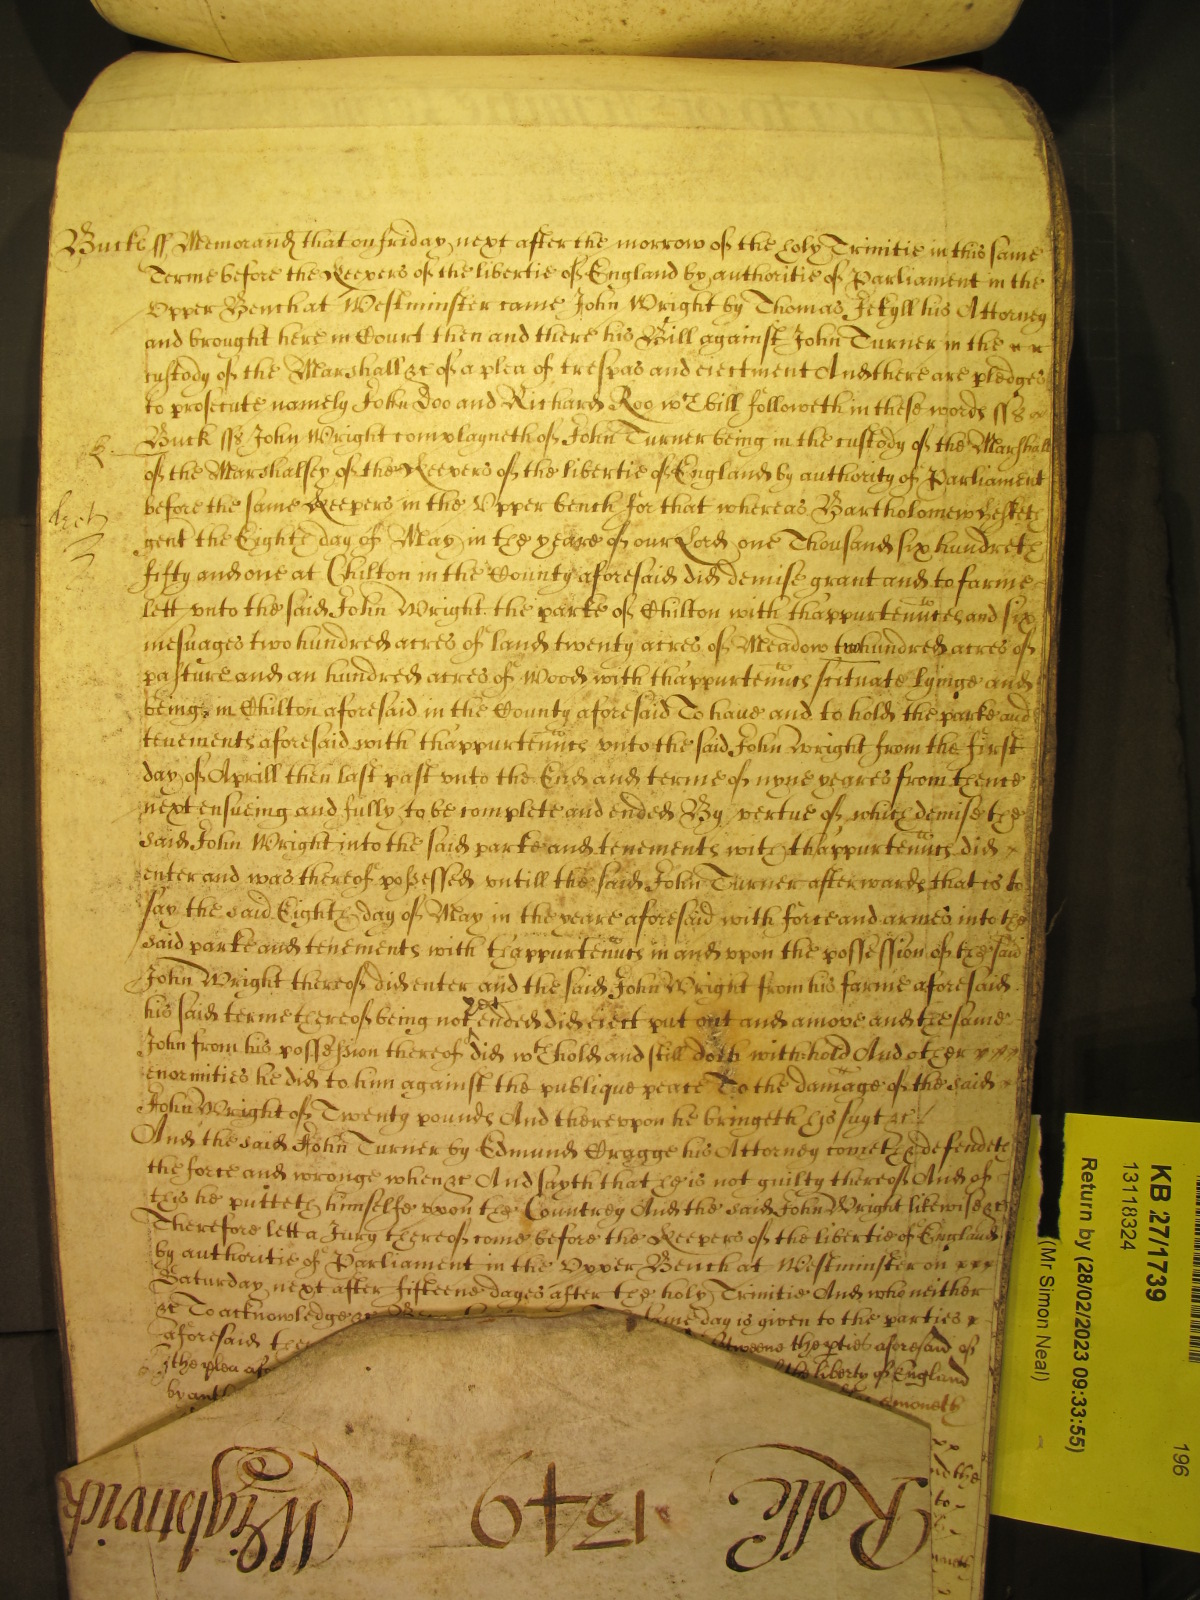 Buck ss Memorand that on friday next after the morrow of the holy Trinitie in this same
Terme before the Keepers of the libertie of England by authoritie of Parliament in the
Vpper Bench at Westminster came John Wright by Thomas Jekyll his Attorney
and brought here in Court then and there his Bill against John Turner in the
custody of the Marshall &c of a plea of trespas and eiectment And there are pledges
to prosecute namely John Doo and Richard Roo wch bill followeth in these words ss
Buck ss John Wright complayneth of John Turner being in the custody of the Marshall
of the Marshalsey of the Keepers of the libertie of England by authority of Parliament
before the same Keepers in the Vpper bench for that whereas Bartholomew
gent the Eighth day of May in the yeare of our Lord one Thousand six hundreth
fifty and one at Chilton in the County aforesaid did demise grant and to farme
lett vnto the said John Wright the parke of Chilton with thappurtennces and six
mesuages two hundred acres of land twenty acres of Meadow two hundred acres of
pasture and an hundred acres of Wood with thappurtennces scituate lyinge and
being in Chilton aforesaid in the County aforesaid To haue and to hold the parke and
tenements aforesaid with thappurtennces vnto the said John Wright from the first
day of Aprill then last past vnto the End and terme of nyne yeares from thence
next ensueing and fully to be complete and ended By vertue of which demise the
said John Wright into the said parke and tenements with thappurtennces did
enter and was thereof possessed vntill the said John Turner afterwards that is to
say the said Eighth day of May in the yeare aforesaid with force and armes into the
said parke and tenements with thappurtennces in and vpon the possession of the said
John Wright thereof did enter and the said John Wright from his farme aforesaid
his said terme thereof being not yet ended did eiect put out and amove and the same
John from his possession thereof did wthhold and still doth withhold And other
enormities he did to him against the publique peace To the damage of the said
John Wright of Twenty pounds And therevpon he bringeth his suyt &c
And the said John Turner by Edmund Cragge his Attorney cometh & defendeth
the force and wronge when &c And sayth that he is not guilty thereof And of
this he putteth himselfe vpon the Countrey And the said John Wright likewise &c
Therefore lett a Jury thereof come before the Keepers of the libertie of England
by authoritie of Parliament in the Vpper Bench at Westminster on
Saturday next after fifteene dayes after the holy Trinitie And who neither
&c To acknowledge &c same day is given to the parties
aforesaid betweene the pties aforesaid of
the plea the liberty of England
by
Rolle 1349 Wightwick
KB 27/1739
13118324
Return by (28/02/2023 09:33:55)
(Mr Simon Neal)
196